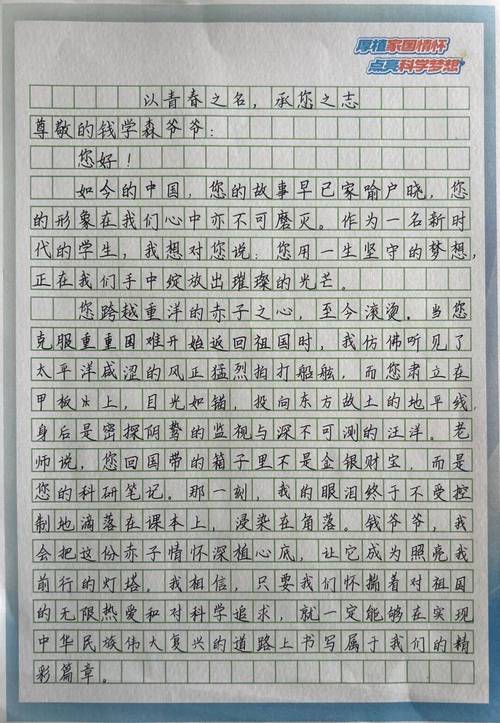 厚植家国情怀
点亮科学梦想
以青春之名，承您之志
尊敬的钱学森爷爷：
您好！
如今的中国，您的故事早已家喻户晓，您
的形象在我们心中亦不可磨灭。作为一名新时
代的学生，我想对您说：您用一生坚守的梦想，
正在我们手中绽放出璀璨的光芒。
您跨越重洋的赤子之心，至今滚烫。当您
克服重重困难开始返回祖国时，我仿佛听见了
太平洋咸涩的风正猛烈拍打船舷，而您肃立在
甲板上，目光如锚，投向东方故土的地平线，
身后是密探阴鸷的监视与深不可测的汪洋。老
师说，您回国带的箱子里不是金银财宝，而是
您的科研笔记。那一刻，我的眼泪终于不受控
制地滴落在课本上，浸染在角落。钱爷爷，我
会把这份赤子情怀深植心底，让它成为照亮我
前行的灯塔。我相信，只要我们怀揣着对祖国
的无限热爱和对科学追求，就一定能够在实现
中华民族伟大复兴的道路上书写属于我们的精
彩篇章。